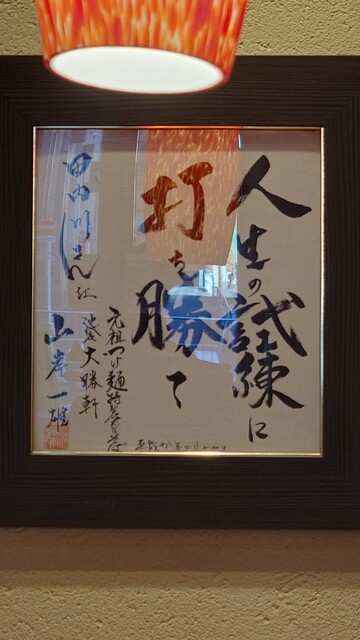 人生の試練に
打ち勝て
元祖つけ麺特製もりそば
池袋大勝軒
山岸一雄
田内川さん江
平成十八年